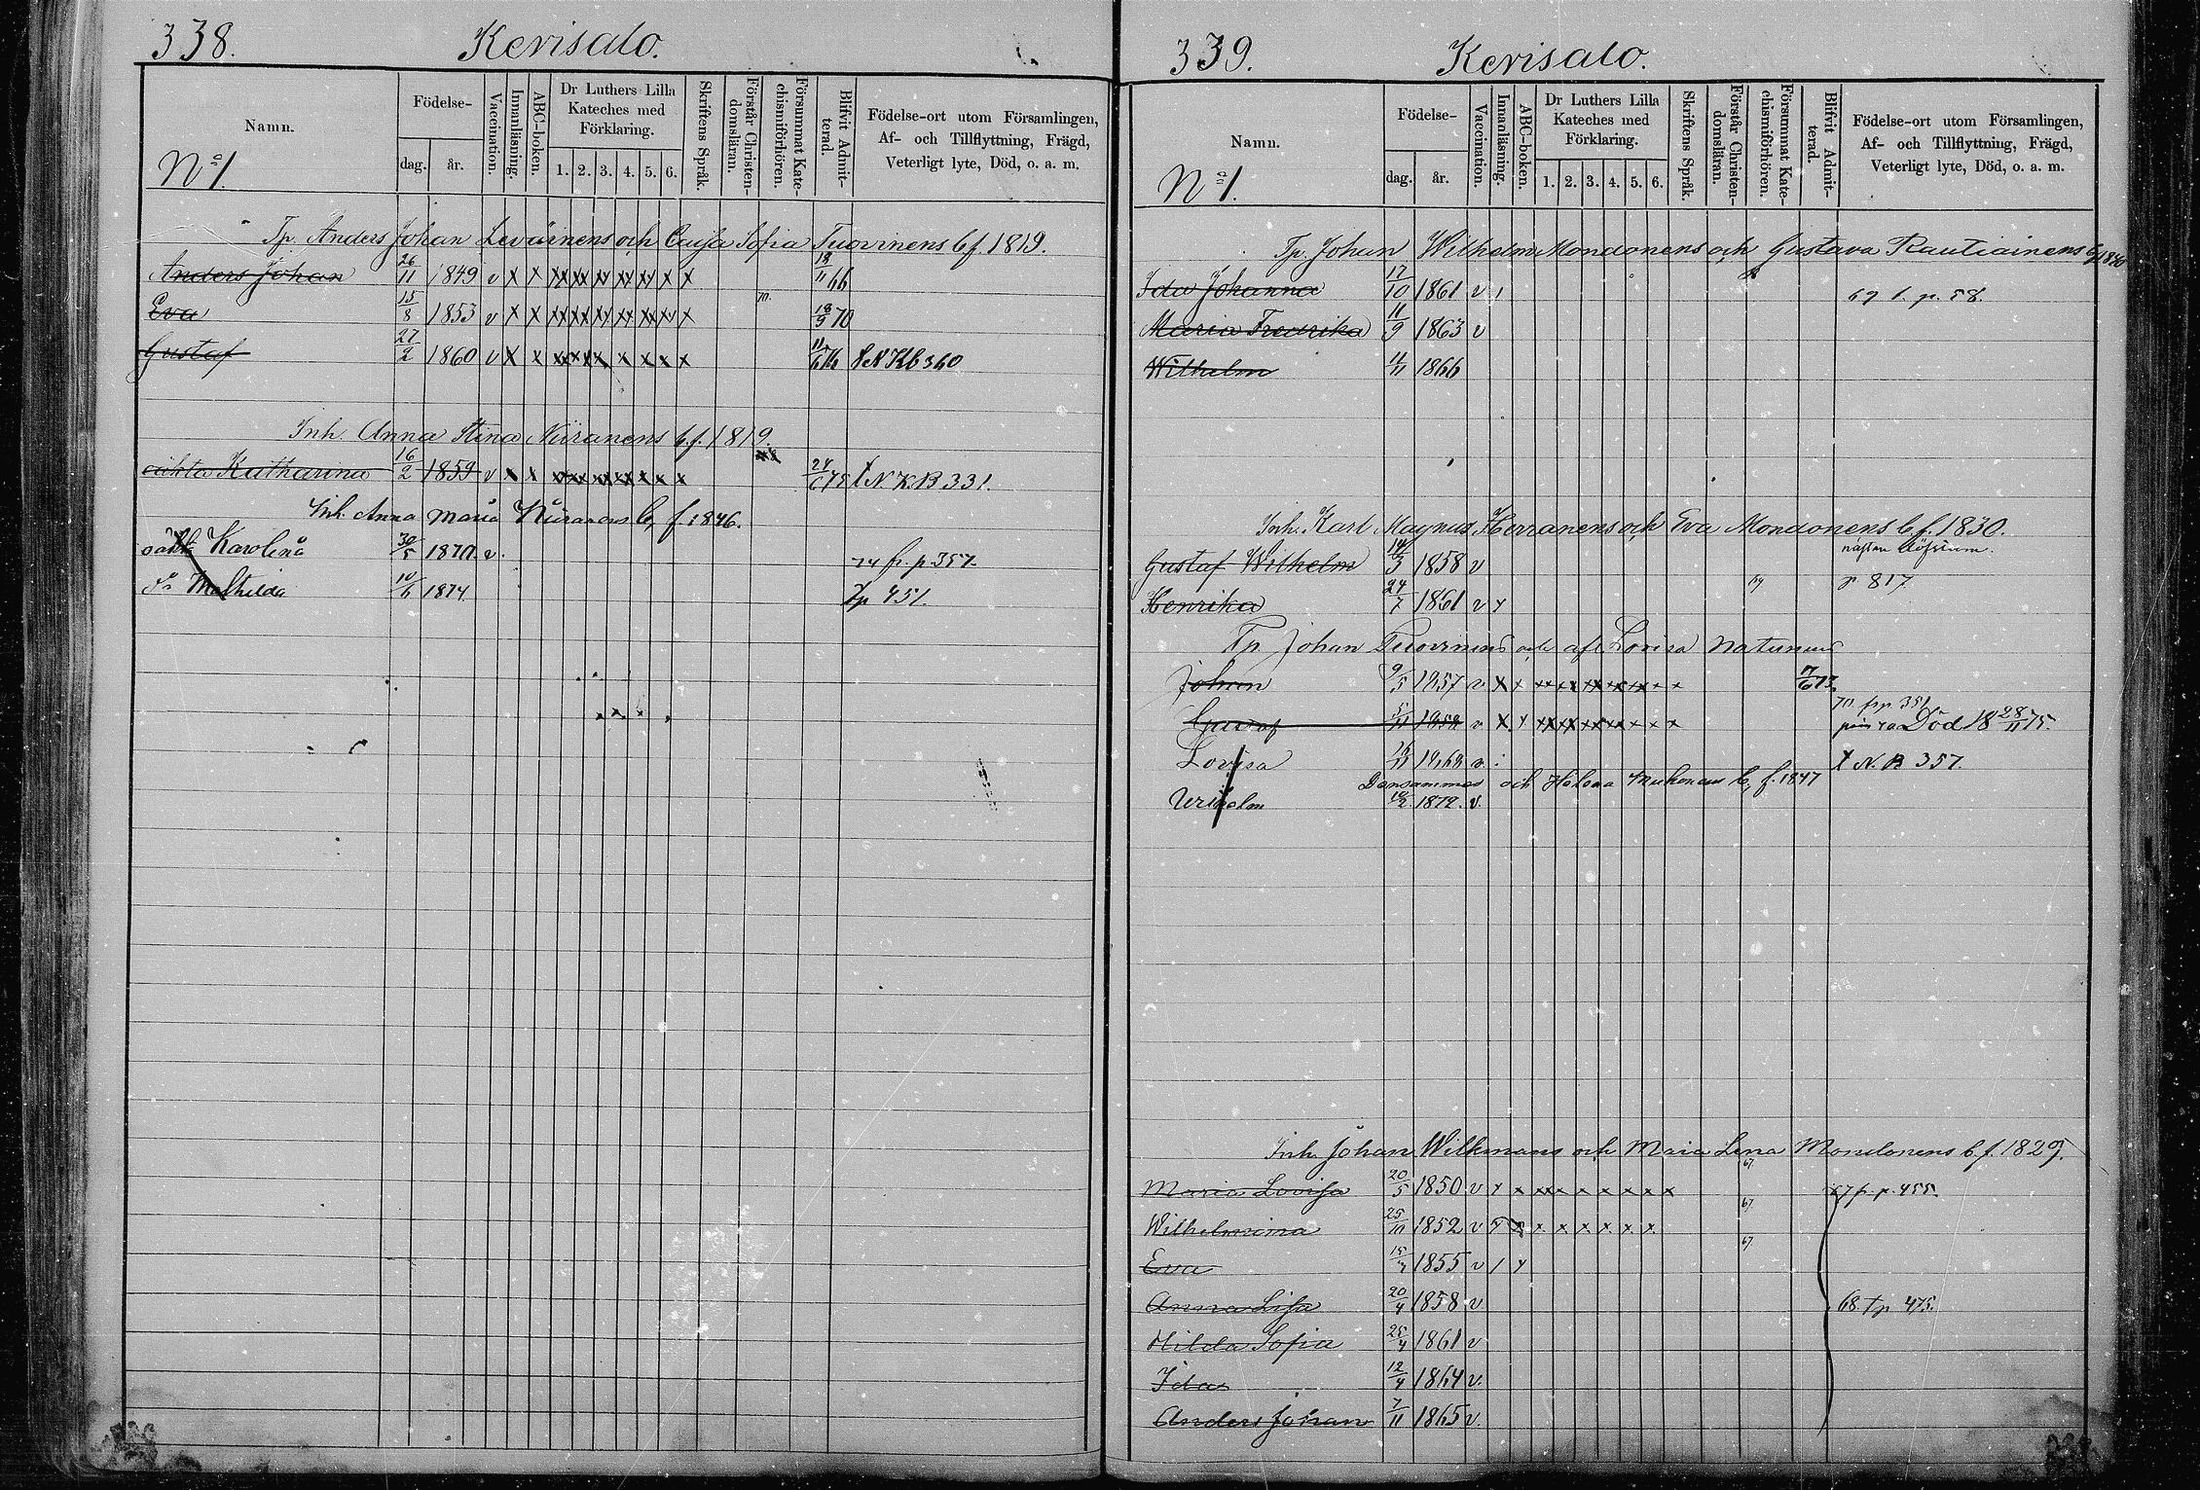 338. Kerisalo.
Namn.
Födelse-
dag. år.
Vaccination.
Innanläsning.
ABC-boken.
Dr Luthers Lilla Kateches med Förklaring.
1. 2. 3. 4. 5. 6.
Skriftens Språk.
Förstår Christendomsläran.
Försummat Katechismiförhören.
Blifvit Admitterad.
Födelse-ort utom Församlingen,
Af- och Tillflyttning, Frägd,
Veterligt lyte, Död, o. a. m.
No 1.
Tp. Anders Johan Levänens och Caisa Sofia Tuovinens b. f. 1819.
Anders Johan 26/11 1849 v x x xx xx xx xx xx x x 18/11 66
Eva 15/8 1853 v x x xx xx xx xx xx xx x 70. 18/9 70
Gustaf 27/2 1860 v x x x x x x x x N Kb 360
Inh. Anna Stina Niiranens b. f. 1819.
oäkta Katharina 16/2 1859 v x x x x x x x x N K B 331.
Inh. Anna Maria Niiranens b. f. 1846.
oäkta Karolina 30/5 1870. v. fr. p. 357.
Do Mathilda 10/6 1874. Tp 451.
339. Kerisalo.
Namn.
Födelse-
dag. år.
Vaccination.
Innanläsning.
ABC-boken.
Dr Luthers Lilla Kateches med Förklaring.
1. 2. 3. 4. 5. 6.
Skriftens Språk.
Förstår Christendomsläran.
Försummat Katechismiförhören.
Blifvit Admitterad.
Födelse-ort utom Församlingen,
Af- och Tillflyttning, Frägd,
Veterligt lyte, Död, o. a. m.
No 1.
Tp. Johan Wilhelm Mondonens och Gustava Rautiainens b. f. 1840
Ida Johanna 17/10 1861 v 69 t. p. 58.
Maria Fredrika 11/9 1863 v
Wilhelm 11/11 1866
Inh. Karl Magnus Horranens och Eva Mondonens b. f. 1830.
Gustaf Wilhelm 14/3 1858 v
Henrika 24/7 1861 v 69 p 817
Tp Johan Tuovinens och afl. Lovisa
Johan 9/5 1857 v. x x 7/6 73.
Gustaf v x x Död 18 28/11 75.
Lovisa N. B 357.
Densammes och Helena b. f. 1847
Wilhelm 1872. v.
Inh. Johan Wilkmans och Maria Lena Mondonens b. f. 1829.
Maria Lovisa 20/5 1850 v x x x x x x x x 67 67 fr. p. 455.
Wilhelmina 25/10 1852 v x x x x x x 67
Eva 1855 v 67
Anna Lisa 20/4 1858 v 68. Tp 475.
Hilda Sofia 25/4 1861 v
Ida 12/4 1864 v.
Anders Johan 7/11 1865 v.